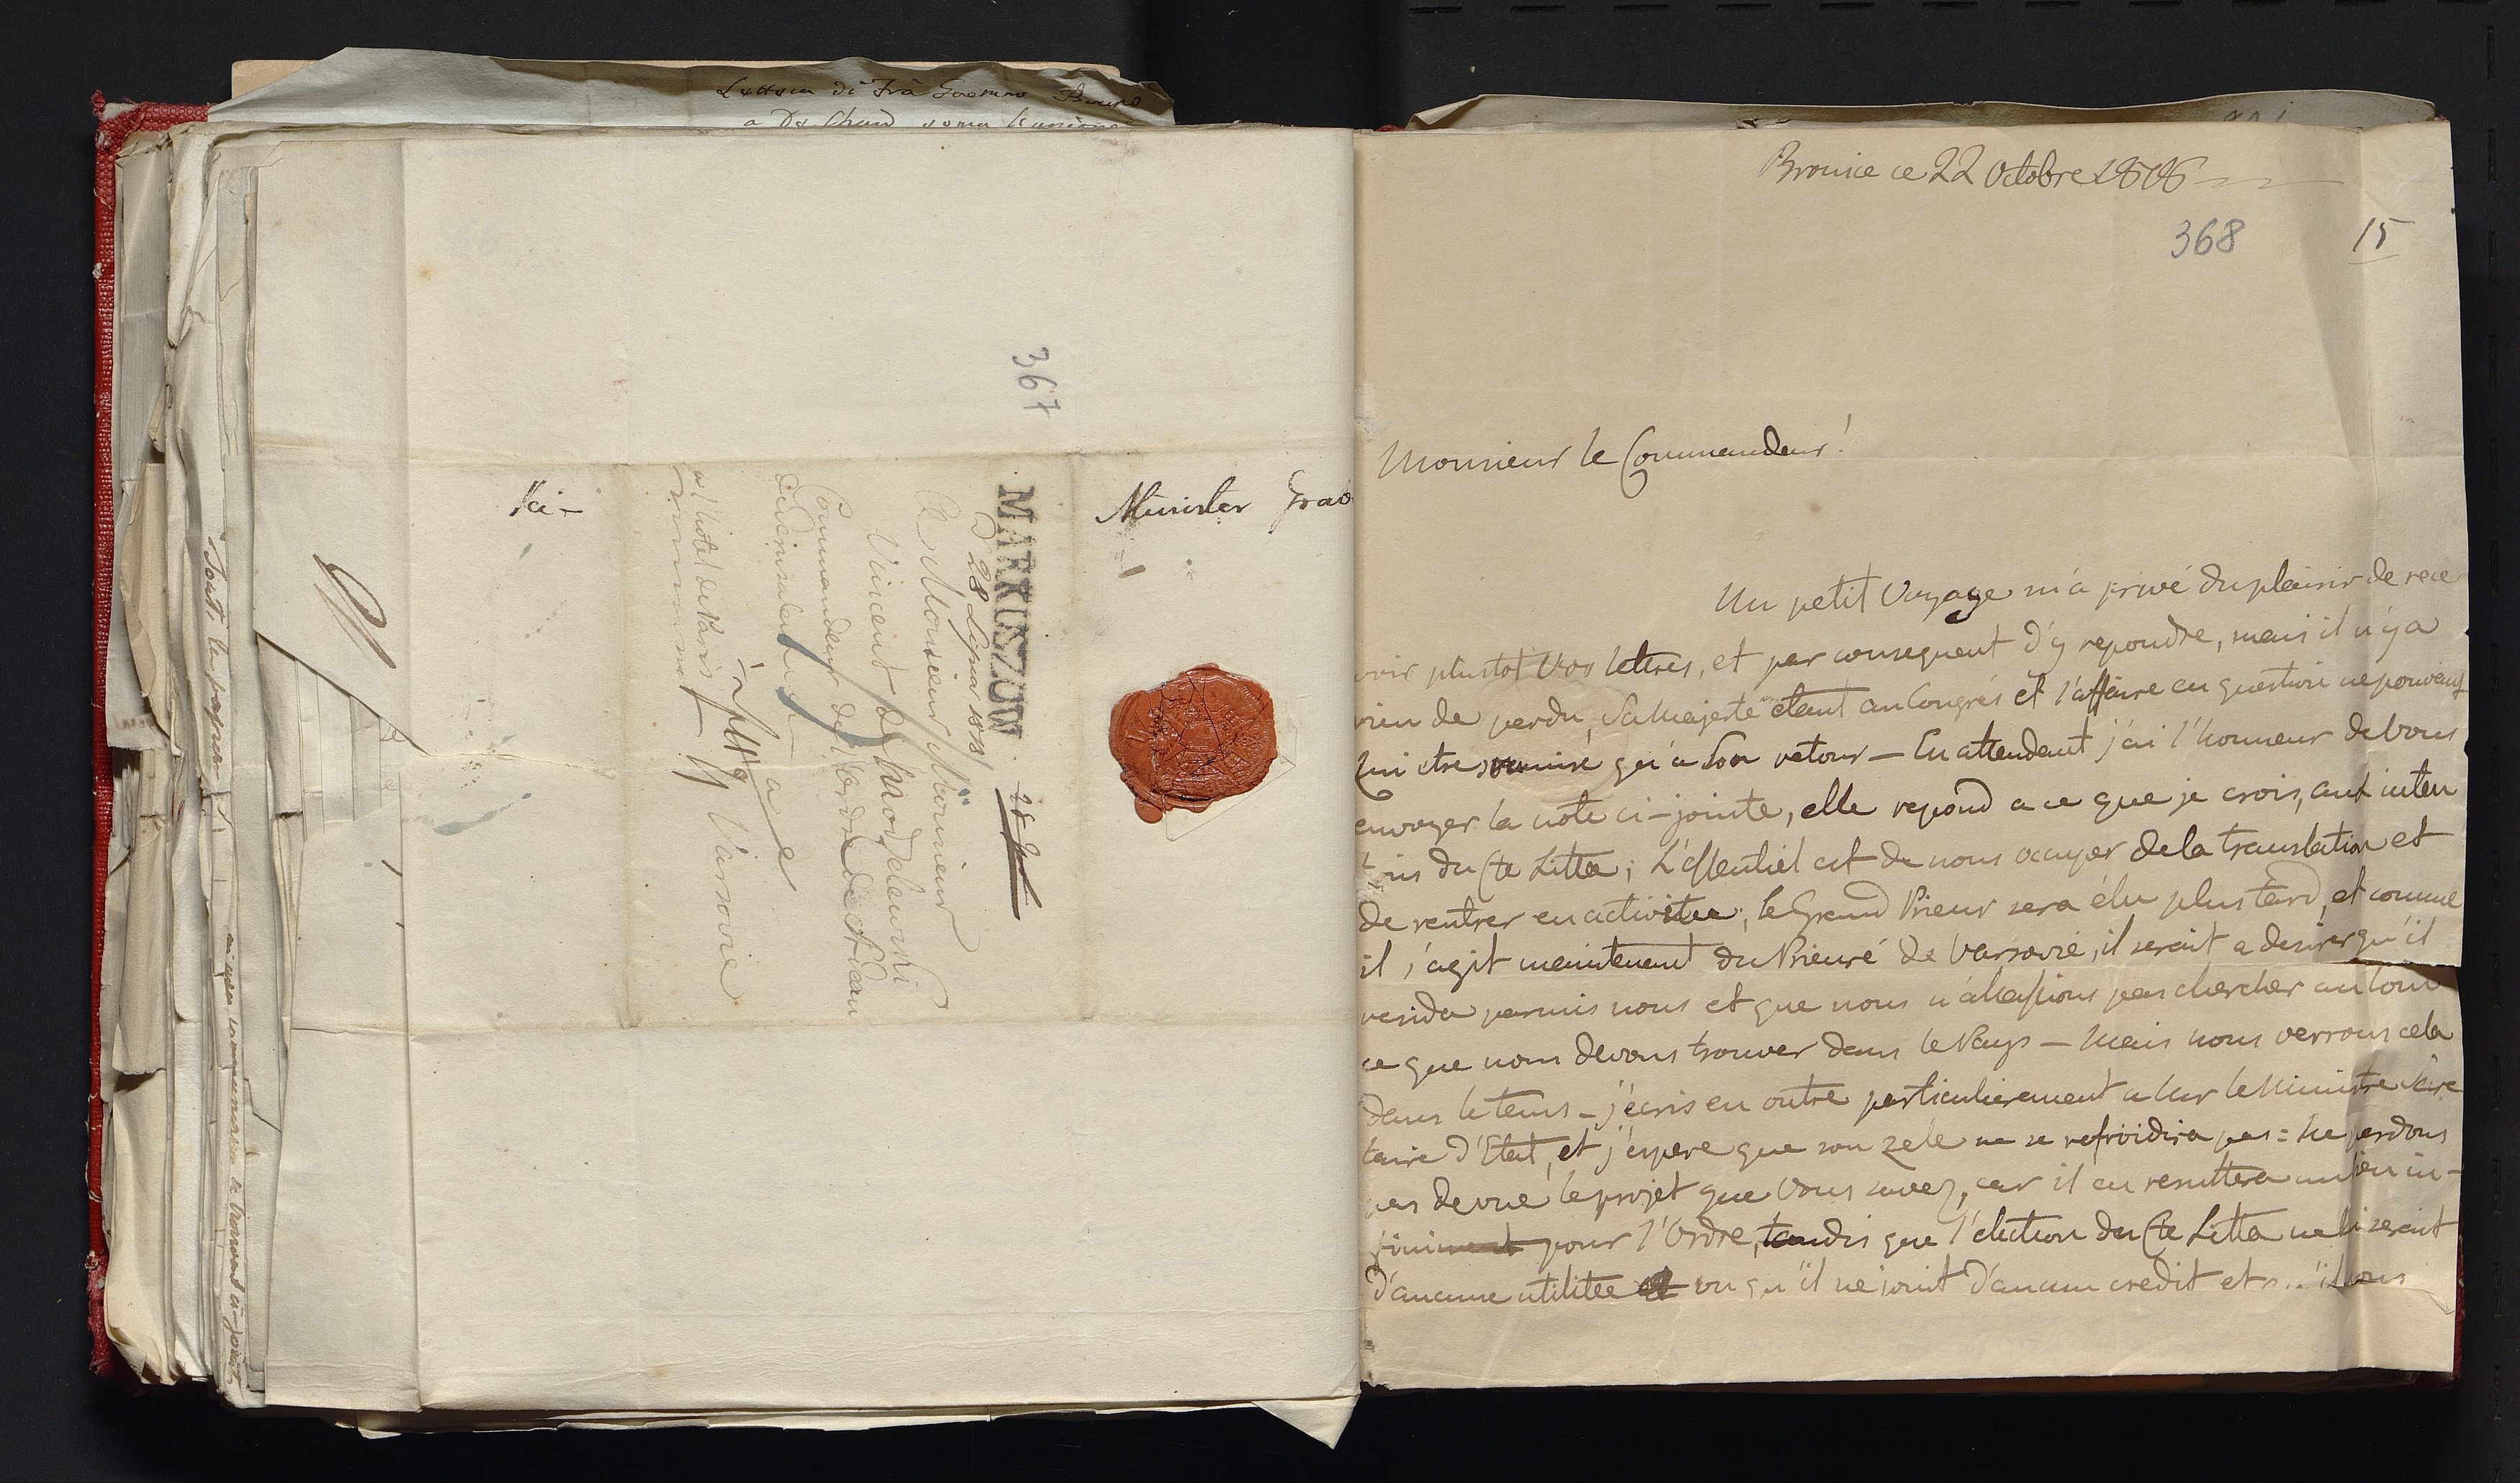 Lettera di Frà Gaetano Bruno
367
Minister Grab
Kci-
MARKUSZOW
D 28 Lipca 1818
A Monsieur Monsieur
Vincent de Skrodelewski
Commandeur de l'Ordre de St Jean
de Jerusalem
a
Varsovie
a l'hotel de Paris
Bronice ce 22 Octobre 1818
368
15
Monsieur le Commandeur!
Un petit Voyage m'a privé du plaisir de rece
voir plustot Vos lettres, et par consequent d'y repondre, mais il n'y a
rien de perdu, Sa Majesté etant au Congrés et l'affaire en question ne pouvant
lui etre soumise qu'a Son retour — En attendant j'ai l'honneur de Vous
envoyer la note ci-jointe, elle repond a ce que je crois, aux inten
tions du Cte Litta; L'essentiel est de nous occuper de la translation et
de rentrer en activitee; le Grand Prieur sera élu plus tard, et comme
il s'agit maintenant du Prieuré de Varsovie, il serait a desirer qu'il
resida parmis nous et que nous n'allassions pas chercher au loin
ce que nous devons trouver dans le Pays — Mais nous verrons cela
dans le tems — j'écris en outre particulierement a Mr le Ministre Secre
taire d'Etat, et j'espere que son zele ne se refroidira pas: Ne perdons
pas de vue le projet que Vous savez, car il en resultera un bien in-
finiment pour l'Ordre, tandis que l'election du Cte Litta ne lui serait
d'aucune utilitee vu qu'il ne jouit d'aucun credit et